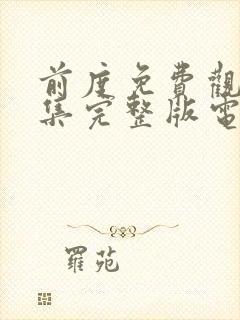 前度免費觀
集完整版電
羅苑